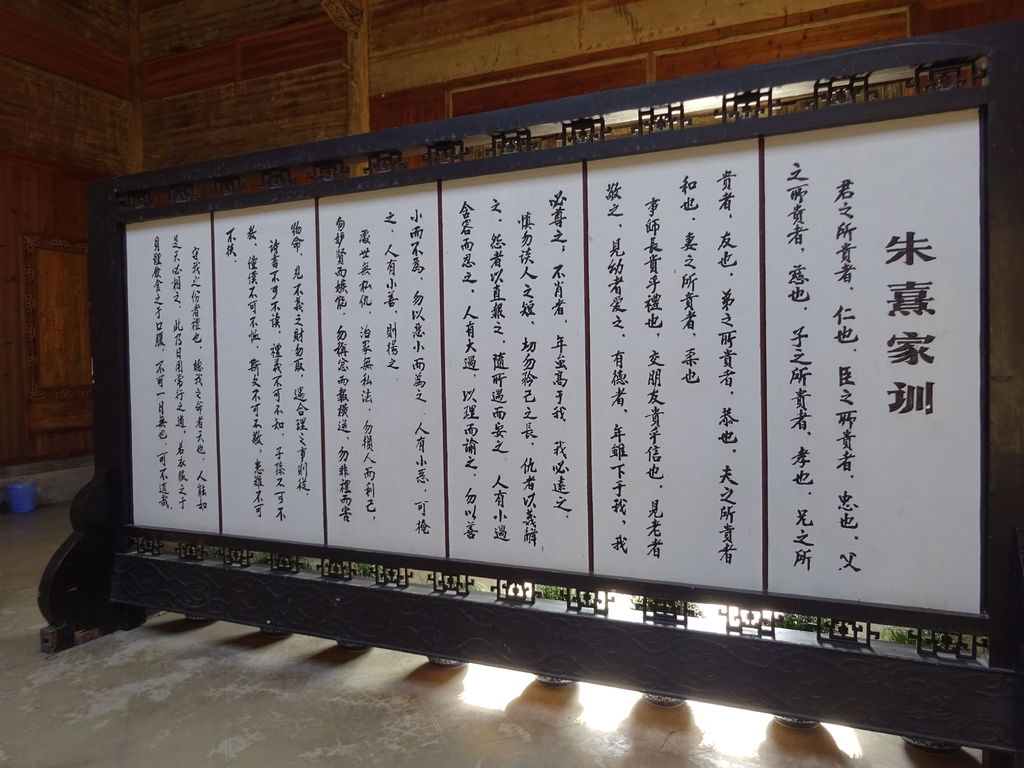 朱熹家训
君之所貴者，仁也，臣之所貴者，忠也，父
之所貴者，慈也，子之所貴者，孝也，兄之所
貴者，友也，弟之所貴者，恭也，夫之所貴者
和也，妻之所貴者，柔也
事師長貴乎禮也，交朋友貴乎信也，見老者
敬之，見幼者爱之，有德者，年雖下于我，我
必尊之；不肖者，年虽高于我，我必遠之，
慎勿谈人之短，切勿矜己之長，仇者以義解
之，怨者以直報之，随所遇而安之，人有小過
含容而忍之，人有大過，以理而谕之，勿以善
小而不為，勿以惡小而為之，人有小惡，可掩
之，人有小善，則揚之
處世無私仇，治家無私法，勿損人而利己，
勿妒賢而嫉能，勿稱忿而報横逆，勿非禮而害
物命，見不義之財勿取，遇合理之事則從，
诗書不可不读，禮義不可不知，子孫不可不
教，僮僕不可不恤，斯文不可不敬，患難不可
不扶，
守我之份者禮也，聽我之命者天也，人能如
是天必相之，此乃日用常行之道，若衣服之于
身體飲食之于口腹，不可一日無也，可不谨哉，